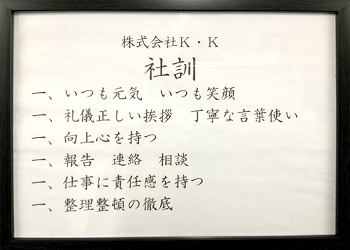 株式会社K・K
社訓
一、いつも元気　いつも笑顔
一、礼儀正しい挨拶　丁寧な言葉使い
一、向上心を持つ
一、報告　連絡　相談
一、仕事に責任感を持つ
一、整理整頓の徹底